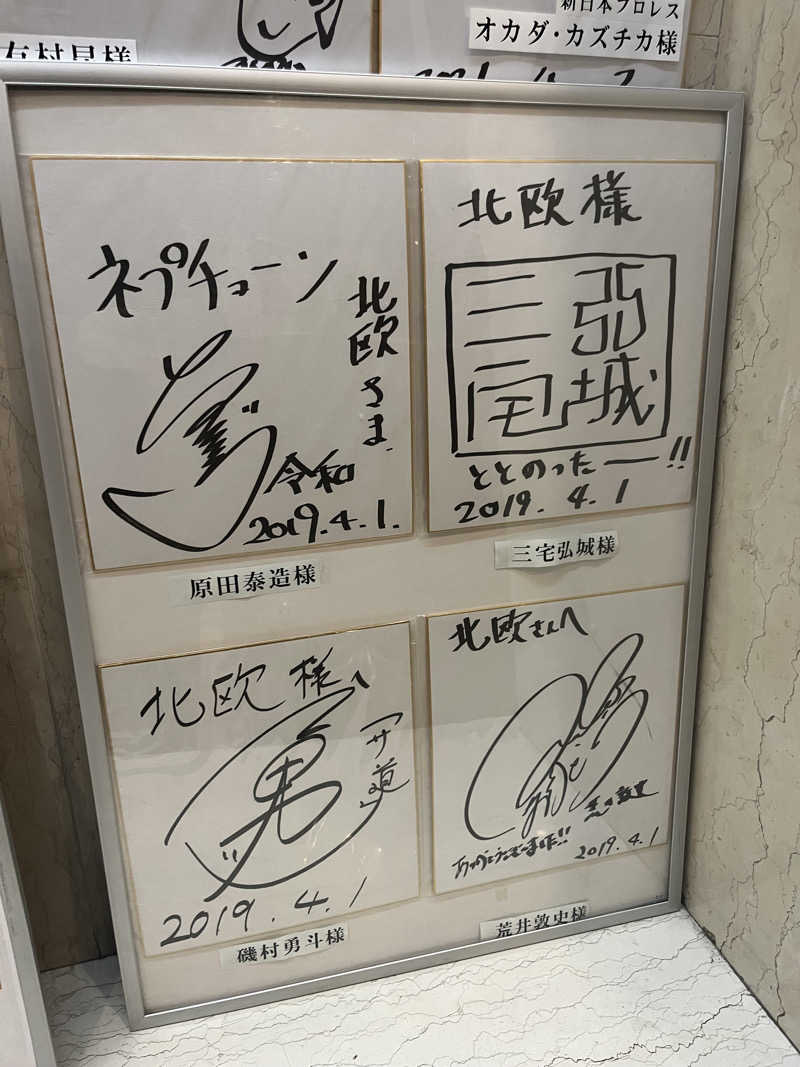 新日本プロレス
オカダ・カズチカ様
ネプチューン
北欧さま
令和
2019.4.1.
原田泰造様
北欧様
三宅弘城
ととのったー!!
2019.4.1
三宅弘城様
北欧様へ
「サ道」
2019.4.1
磯村勇斗様
北欧さんへ
ありがとうございました!!
2019.4.1
荒井敦史様